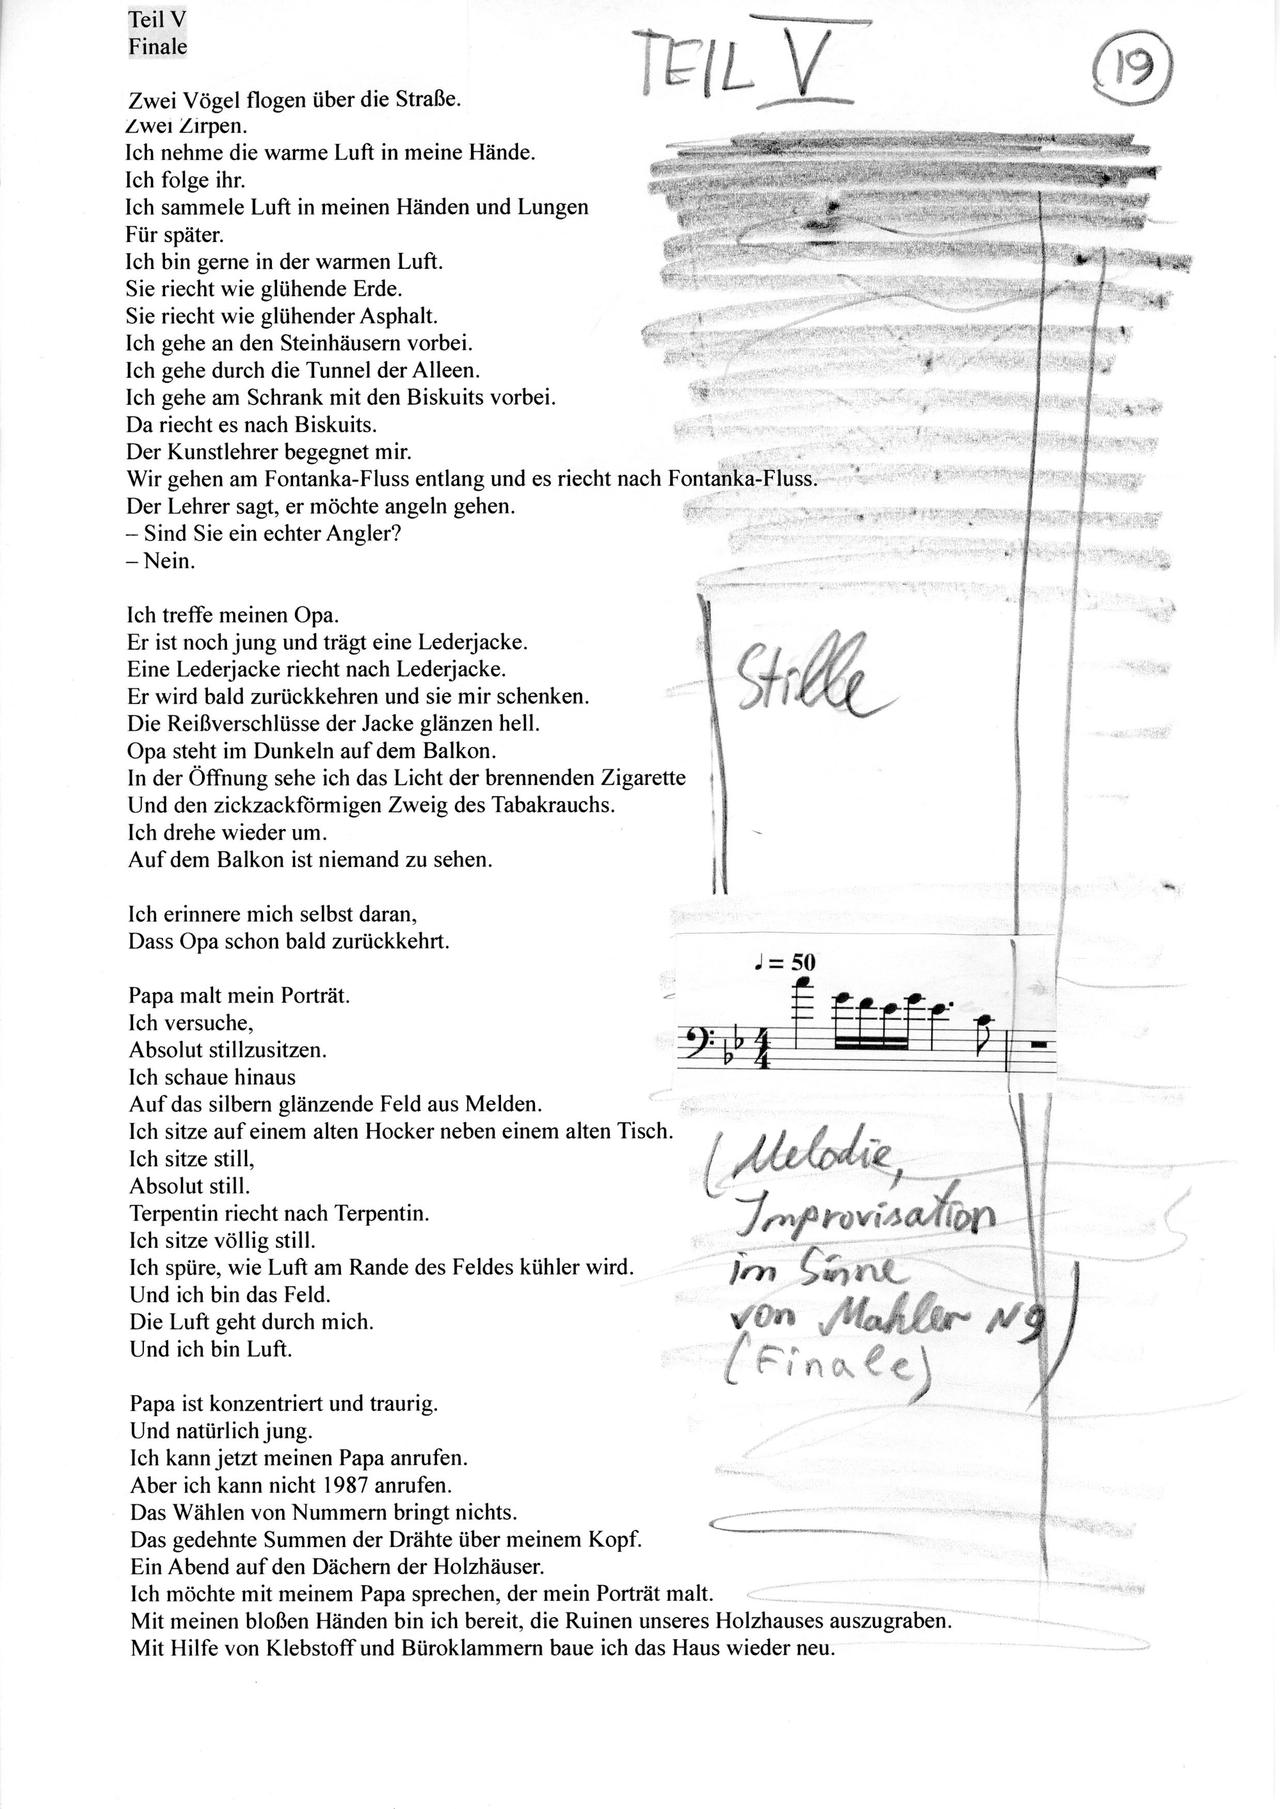 Teil V
Finale
TEIL V
19
Zwei Vögel flogen über die Straße.
Zwei Zirpen.
Ich nehme die warme Luft in meine Hände.
Ich folge ihr.
Ich sammele Luft in meinen Händen und Lungen
Für später.
Ich bin gerne in der warmen Luft.
Sie riecht wie glühende Erde.
Sie riecht wie glühender Asphalt.
Ich gehe an den Steinhäusern vorbei.
Ich gehe durch die Tunnel der Alleen.
Ich gehe am Schrank mit den Biskuits vorbei.
Da riecht es nach Biskuits.
Der Kunstlehrer begegnet mir.
Wir gehen am Fontanka-Fluss entlang und es riecht nach Fontanka-Fluss.
Der Lehrer sagt, er möchte angeln gehen.
– Sind Sie ein echter Angler?
– Nein.
Ich treffe meinen Opa.
Er ist noch jung und trägt eine Lederjacke.
Eine Lederjacke riecht nach Lederjacke.
Er wird bald zurückkehren und sie mir schenken.
Die Reißverschlüsse der Jacke glänzen hell.
Opa steht im Dunkeln auf dem Balkon.
In der Öffnung sehe ich das Licht der brennenden Zigarette
Und den zickzackförmigen Zweig des Tabakrauchs.
Ich drehe wieder um.
Auf dem Balkon ist niemand zu sehen.
Stille
Ich erinnere mich selbst daran,
Dass Opa schon bald zurückkehrt.
Papa malt mein Porträt.
Ich versuche,
Absolut stillzusitzen.
Ich schaue hinaus
Auf das silbern glänzende Feld aus Melden.
Ich sitze auf einem alten Hocker neben einem alten Tisch.
Ich sitze still,
Absolut still.
Terpentin riecht nach Terpentin.
Ich sitze völlig still.
Ich spüre, wie Luft am Rande des Feldes kühler wird.
Und ich bin das Feld.
Die Luft geht durch mich.
Und ich bin Luft.
♩ = 50
4
4
(Melodie,
Improvisation
im Sinne
von Mahler N9
(Finale)
)
Papa ist konzentriert und traurig.
Und natürlich jung.
Ich kann jetzt meinen Papa anrufen.
Aber ich kann nicht 1987 anrufen.
Das Wählen von Nummern bringt nichts.
Das gedehnte Summen der Drähte über meinem Kopf.
Ein Abend auf den Dächern der Holzhäuser.
Ich möchte mit meinem Papa sprechen, der mein Porträt malt.
Mit meinen bloßen Händen bin ich bereit, die Ruinen unseres Holzhauses auszugraben.
Mit Hilfe von Klebstoff und Büroklammern baue ich das Haus wieder neu.